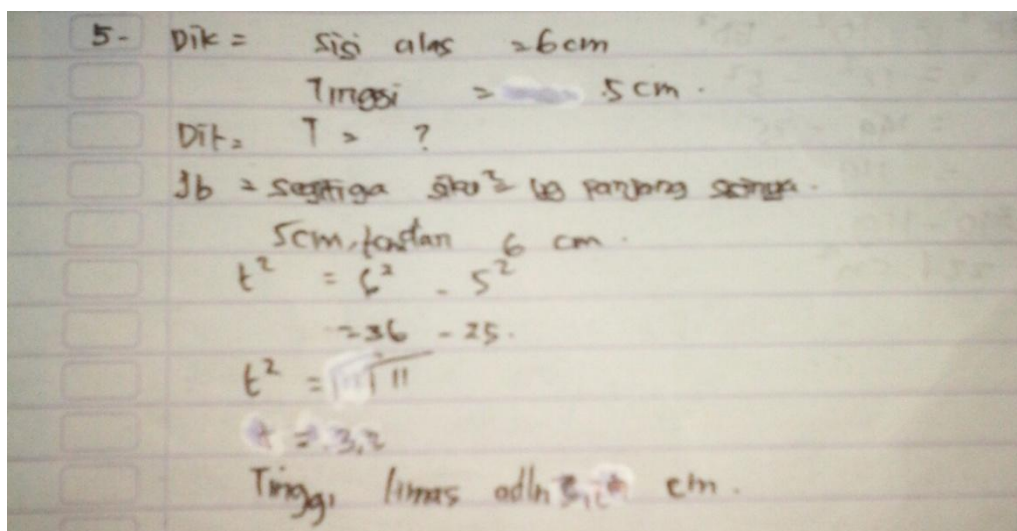 5- Dik = Sisi alas = 6cm
Tinggi = 5 cm.
Dit = T = ?
Jb = Segitiga siku² yg panjang sisinya.
5cm, 6 cm.
t² = 6² - 5²
= 36 - 25.
t² = √11
t = 3,2
Tinggi limas adln 3,2 cm.